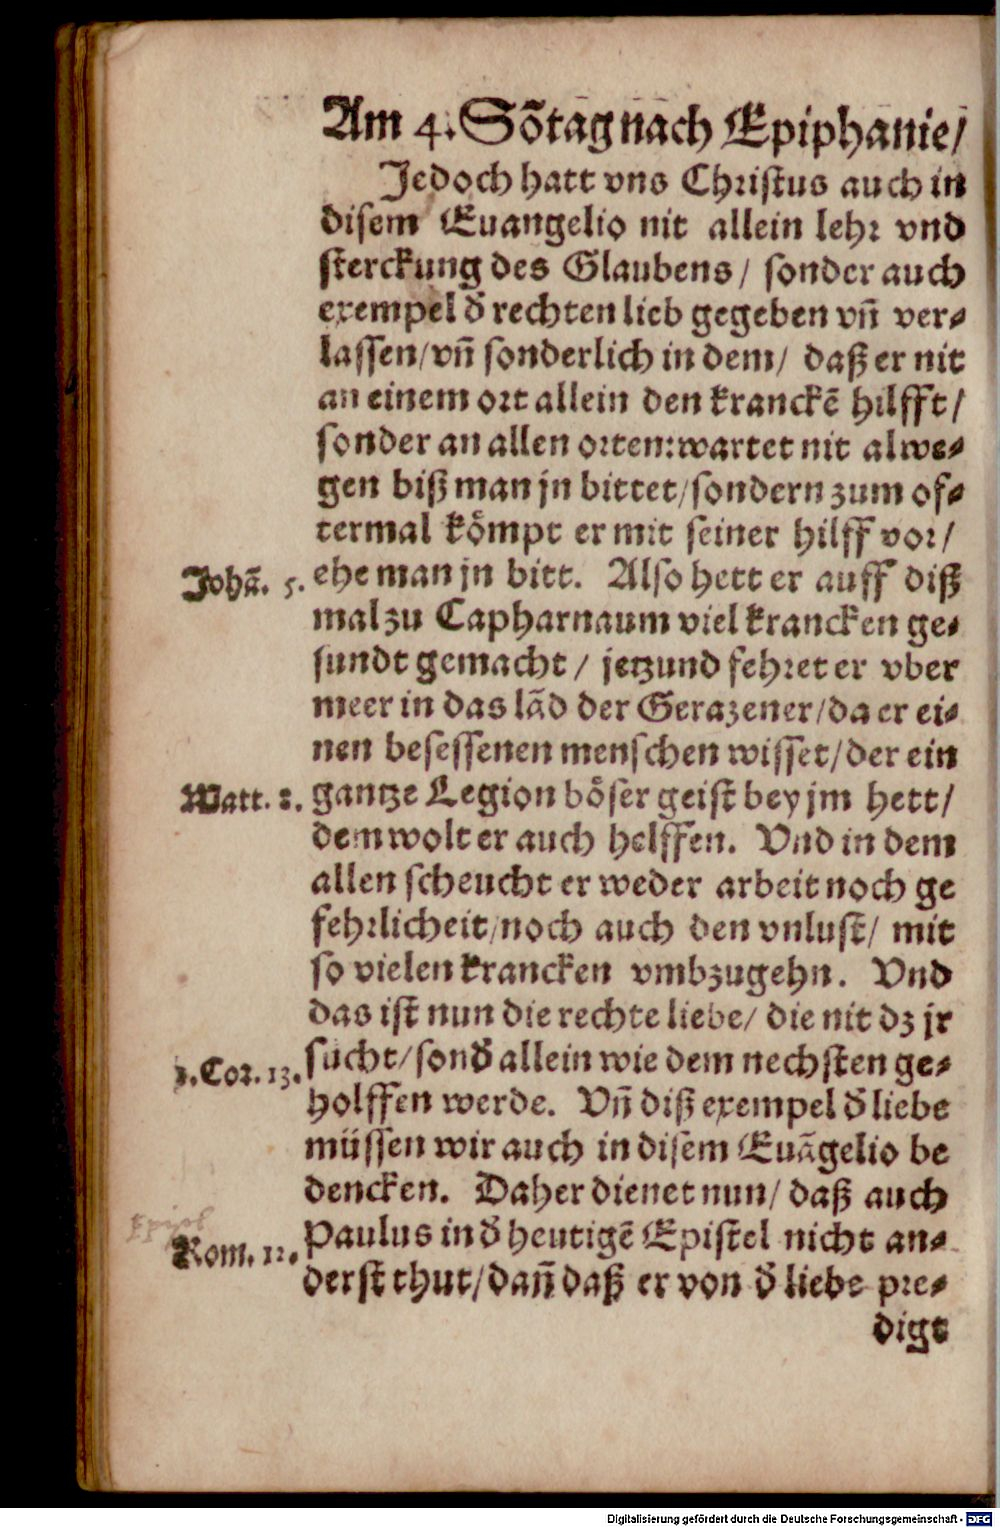 Am 4. Sõtag nach Epiphanie/
Jedoch hatt vns Christus auch in
disem Euangelio nit allein lehr vnd
sterckung des Glaubens/ sonder auch
exempel d̕ rechten lieb gegeben vñ ver-
lassen/vñ sonderlich in dem/ daß er nit
an einem ort allein den kranckẽ hilfft/
sonder an allen orten:wartet nit alwe-
gen biß man jn bittet/sondern zum of-
termal kömpt er mit seiner hilff vor/
Johã. 5.
ehe man jn bitt. Also hett er auff diß
mal zu Capharnaum viel krancken ge-
sundt gemacht / jetzund fehret er vber
meer in das lãd der Gerazener/da er ei-
nen besessenen menschen wisset/der ein
Matt. 8.
gantze Legion böser geist bey jm hett/
dem wolt er auch helffen. Vnd in dem
allen scheucht er weder arbeit noch ge
fehrlicheit/noch auch den vnlust/ mit
so vielen krancken vmbzugehn. Vnd
das ist nun die rechte liebe/ die nit dz jr
1. Cor. 13.
sucht/sond̕ allein wie dem nechsten ge-
holffen werde. Vñ diß exempel d̕ liebe
müssen wir auch in disem Euãgelio be
dencken. Daher dienet nun/ daß auch
Epistol
Rom. 12.
Paulus in d̕ heutigẽ Epistel nicht an-
derst thut/dañ daß er von d̕ liebe pre-
digt
Digitalisierung gefördert durch die Deutsche Forschungsgemeinschaft - DFG